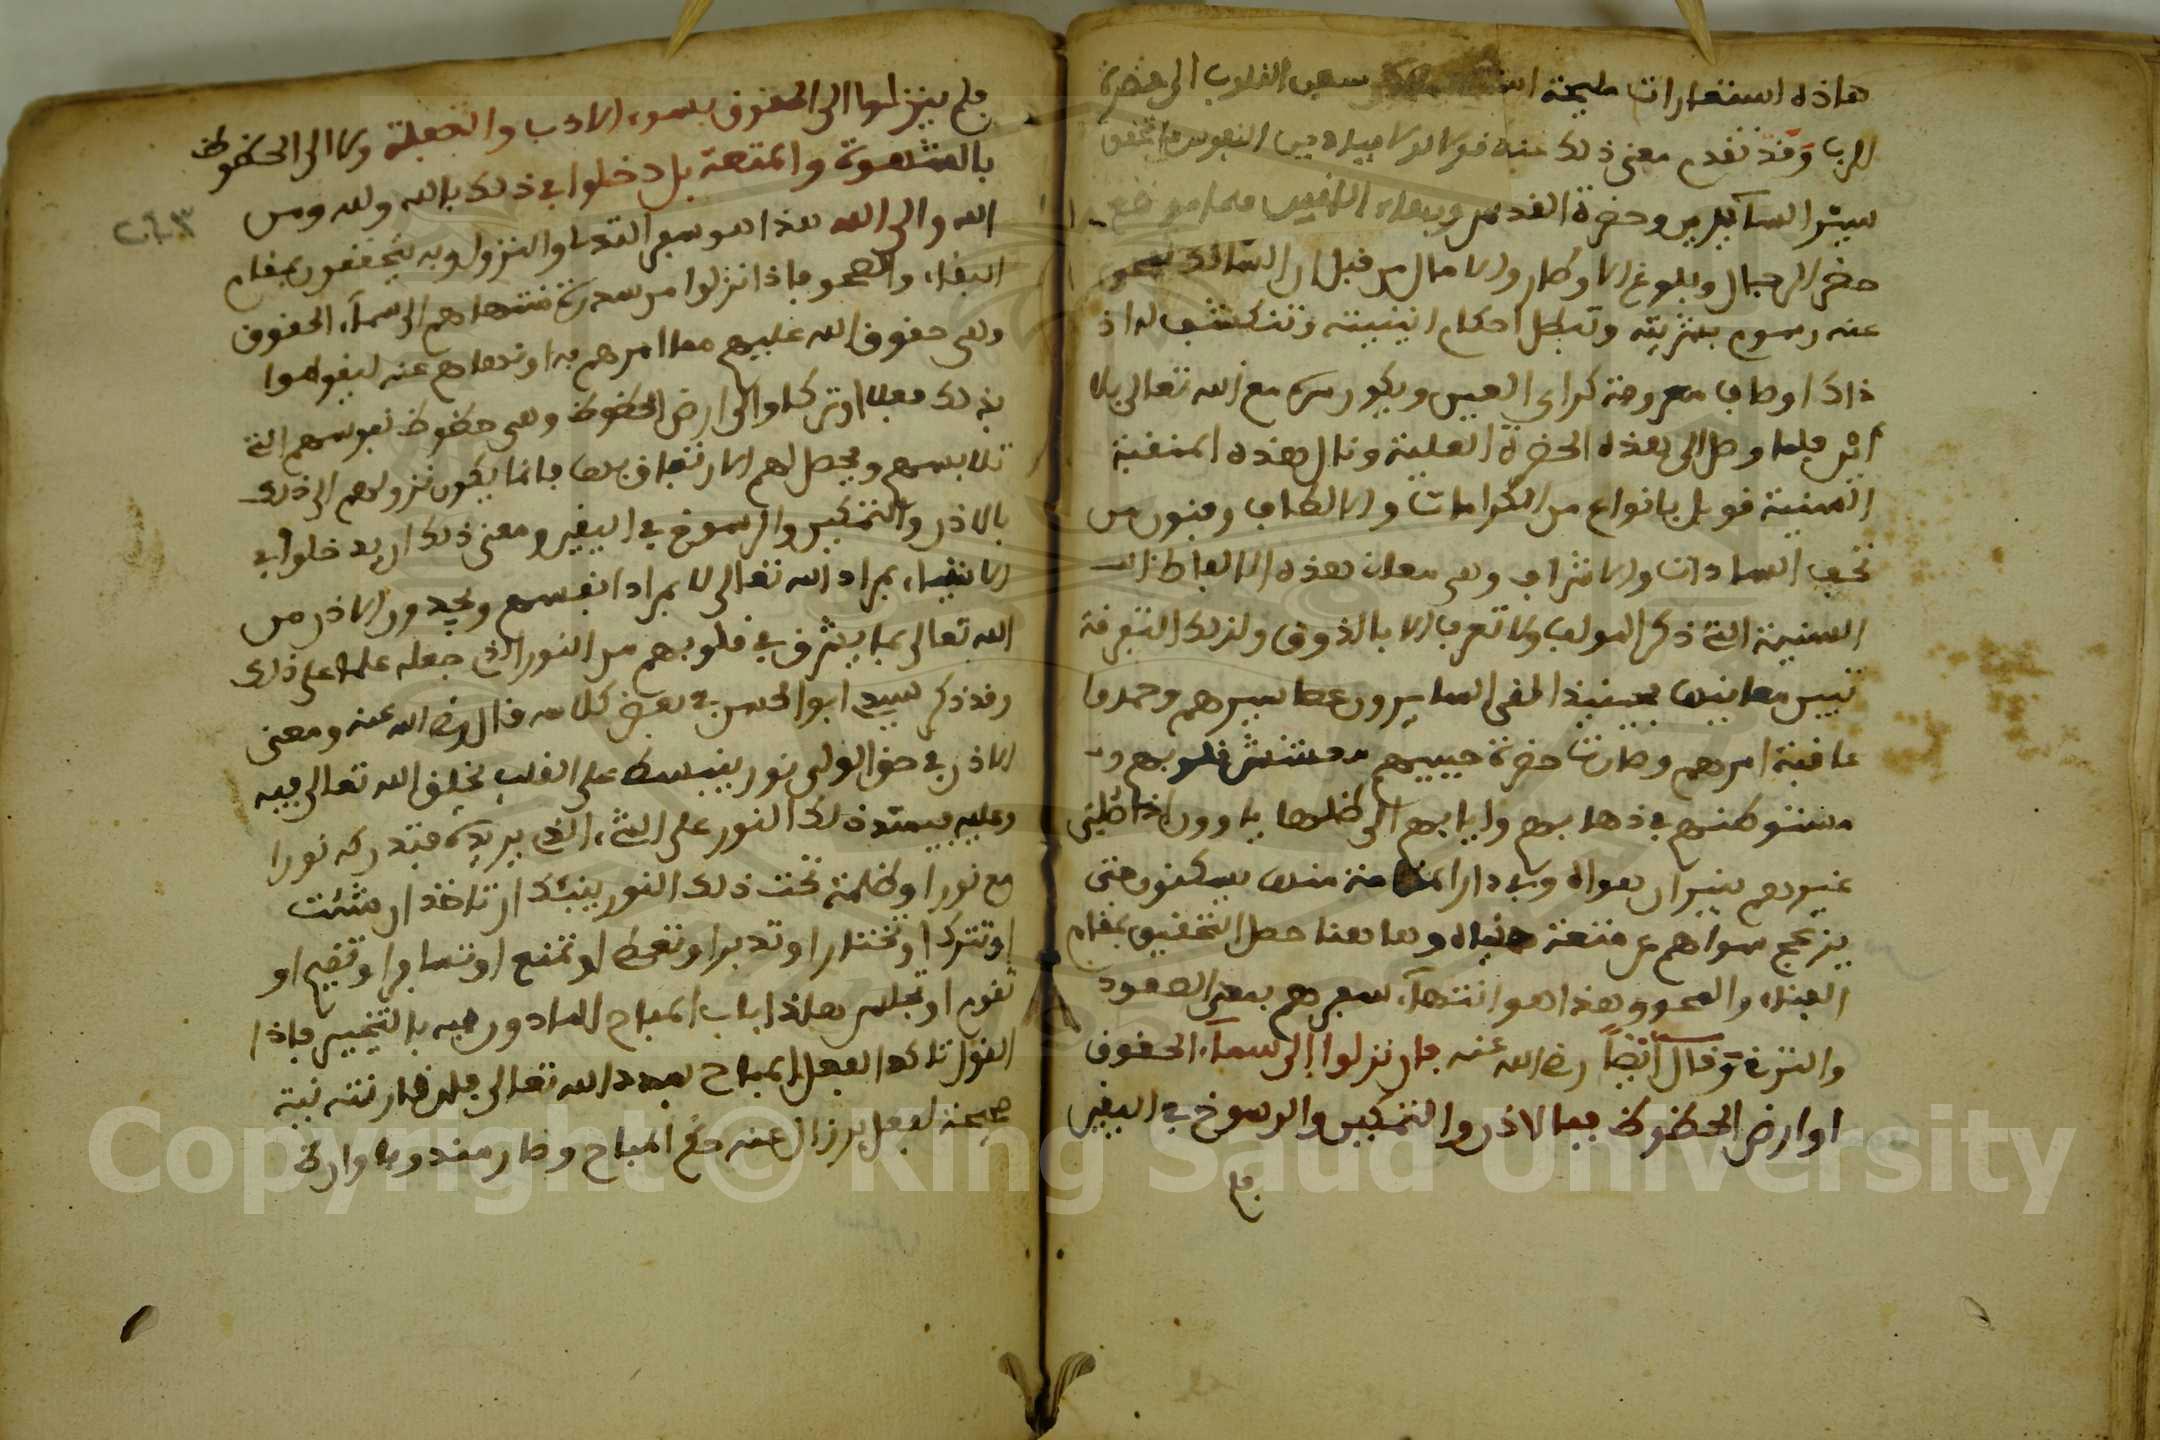 هاذه استعارات مليحة سير القلوب الى حضرة
الرب وقد تقدم معنى ذلك عند قوله لولا ميادين النفوس ما تحقق
سير السائرين وحضرة القدس
حضر الرحال وبلوغ الاوطار والامال من قبل ان السالك
عنه رسوم بشريته وتبطل احكام انيته وتنكشف له اذ
ذاك اوصاف معروفه كراى العين ويكون سره مع الله تعالى بلا
اين فلما وصل الى هذه الحضرة العلية ونال هذه المنقبة
السنية قوبل بانواع من الكرامات والالطاف وفنون من
تحف السادات والاشراف وهى معان هذه الالفاظ
السنية التى ذكر المولف ولا تعرف الا بالذوق ولذلك التفرقة
بين معانيها فحينيذ القى السايرون عصا سيرهم وحمدوا
عاقبة امرهم وصارت حضرة حبيبهم معشش قلوبهم و
مستوطنهم فى ذهابهم وايابهم الى ظلها ياوون اذا ظلى
غيرهم نيران هواه وفى دار امنة منها يسكنون حتى
ينزعج سواهم عن متعة دنياه وهاهنا حصل التحقيق بمقام
الفناء والمحو وهذا هو انتهاء سفرهم بمعنى الصعود
والترقى وقال ايضا رضى الله عنه فان نزلوا الى سماء الحقوق
او ارض الحظوظ فبالاذن والتمكين والرسوخ فى اليقين
فلم
فلم ينزلوا الى الحقوق بسوء الادب والغفلة ولا الى الحظوظ
بالشهوة والمتعة بل دخلوا فى ذلك بالله ولله ومن
الله والى الله هذا هو سفر التدلى والنزول وبه يتحققون بمقام
البقاء والصحو فاذا نزلوا من سدرة منتهاهم الى سماء الحقوق
وهى حقوق الله عليهم مما امرهم به او نهاهم عنه ليقوموا
بذلك فعلا او تركا او الى ارض الحظوظ وهى حظوظ نفوسهم التى
تلابسهم ويحصل لهم الارتفاق بها فانما يكون نزولهم الى ذلك
بالاذن والتمكين والرسوخ فى اليقين ومعنى ذلك ان يدخلوا فى
الاشياء بمراد الله تعالى لا بمراد انفسهم ويجدون الاذن من
الله تعالى بما يشرق فى قلوبهم من النور الذى جعله علما على ذلك
وقد ذكر سيدى ابو الحسن فى بعض كلامه قال رضى الله عنه ومعنى
الاذن فى حق الولى نور ينبسط على القلب يخلق الله تعالى فيه
وعليه فيمتد ذلك النور على الشىء الذى يريده فتدركه نورا
مع نور او ظلمة تحت ذلك النور ينبئك ان تاخذ ان شئت
او تترك او تختار او تدبر او تعطى او تمنع او تسافر او تقيم او
تقوم او تجلس هذا باب المباح الماذون فيه بالتخيير فاذا
القول تاكد الفعل المباح بمراد الله تعالى فان قارنته نية
صحيحة لفعل برزال عنه حكم المباح وصار مندوبا وان
Copyright © King Saud University